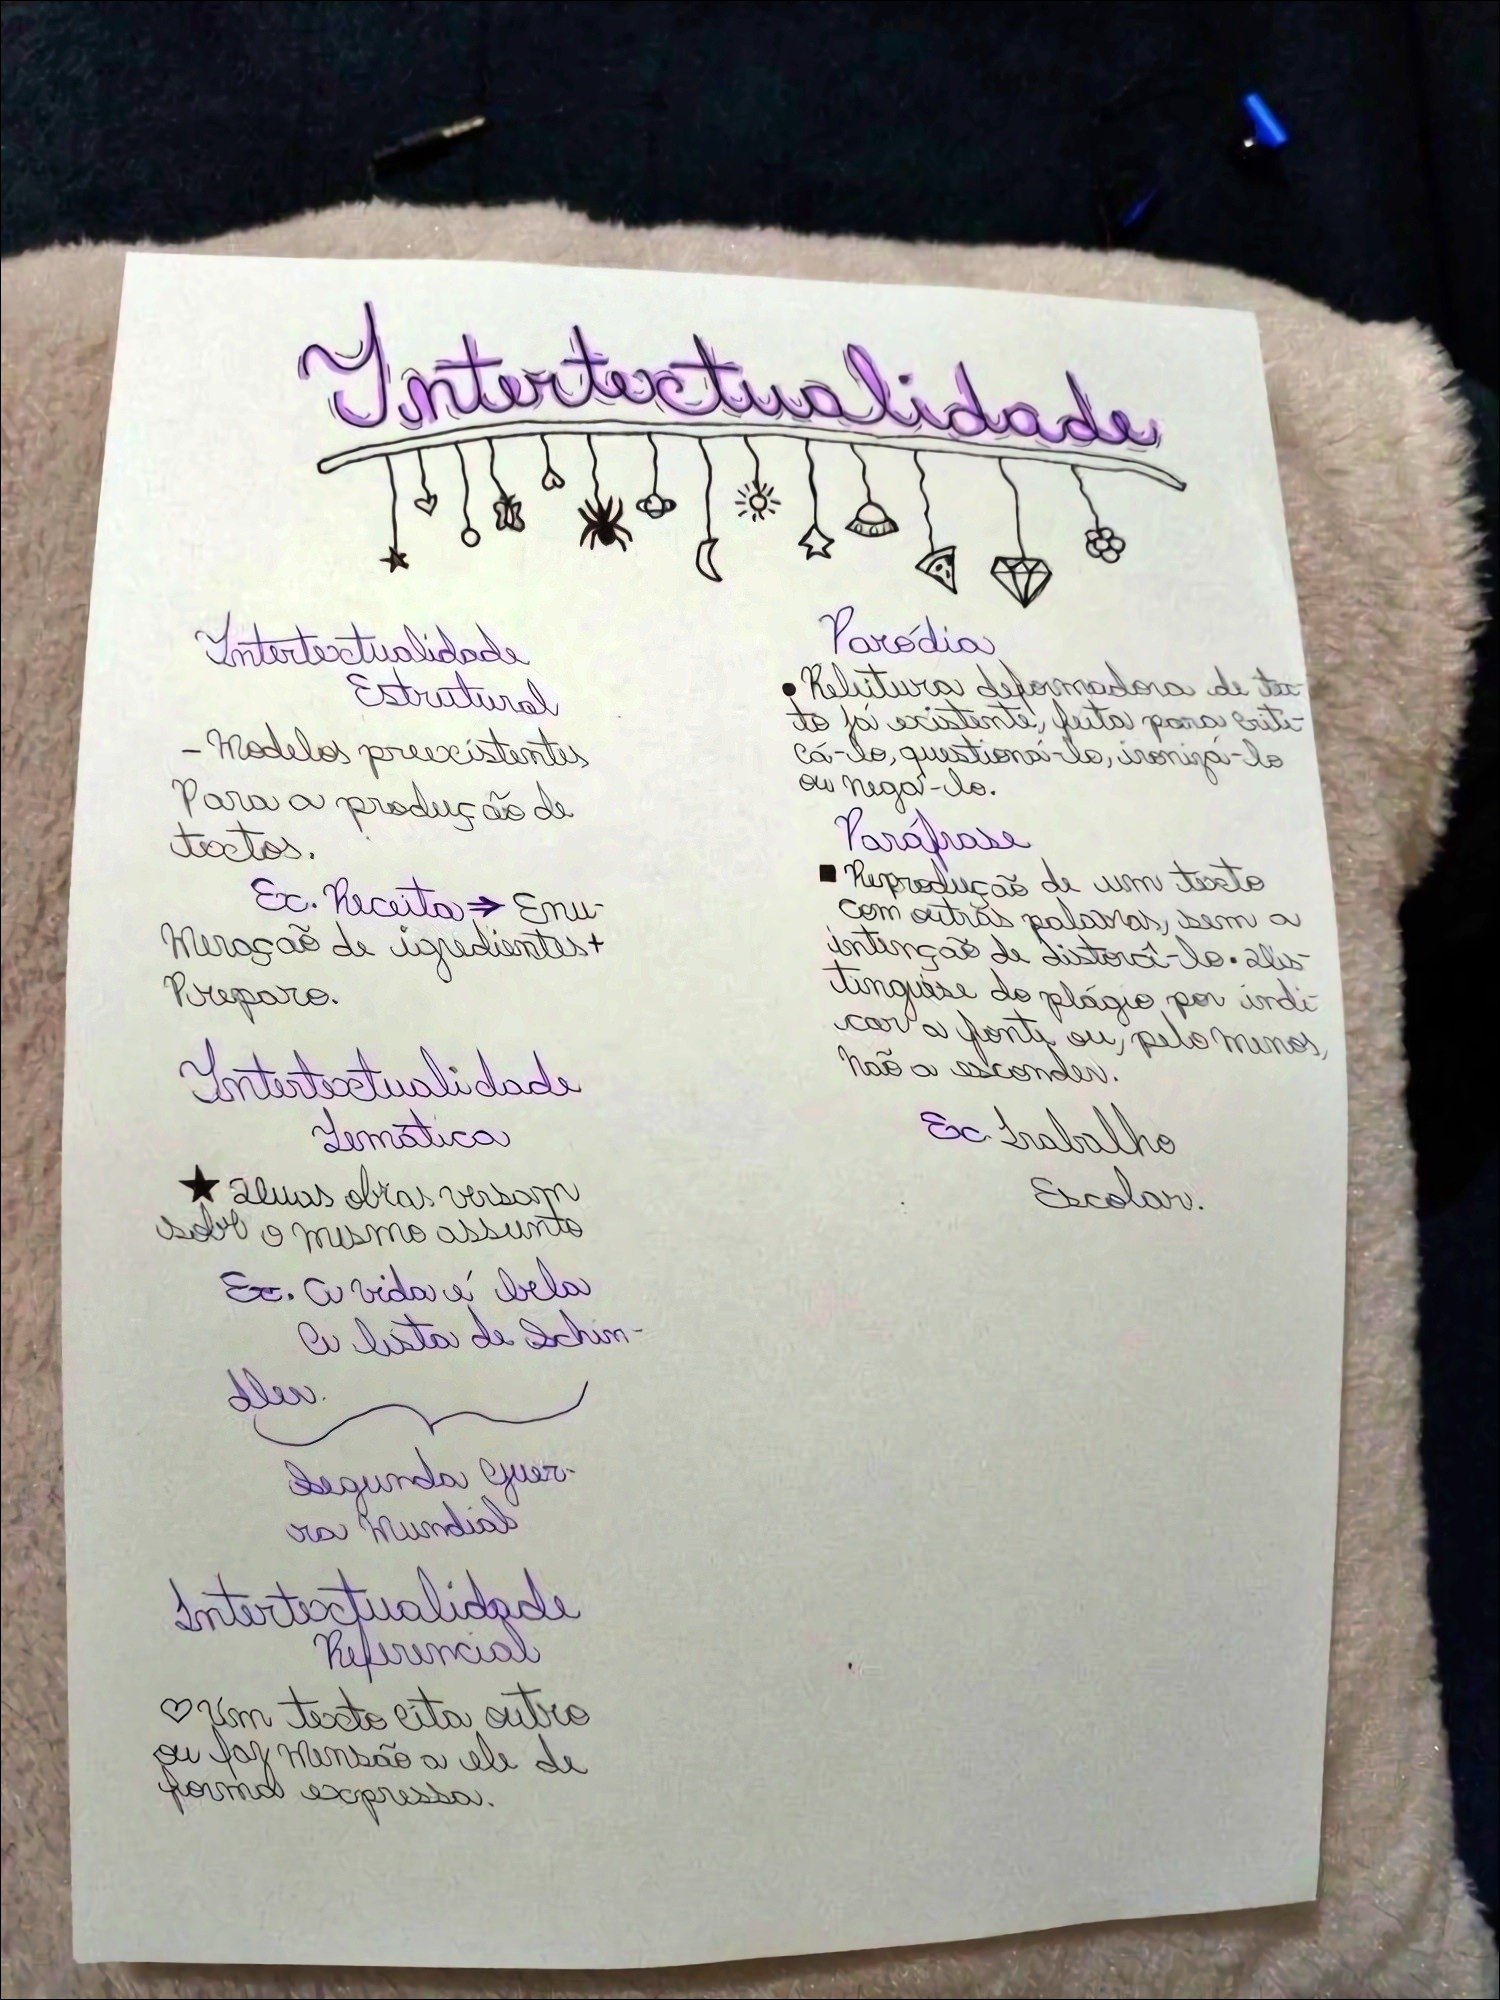 Intertextualidade
Intertextualidade
Estrutural
- Modelos preexistentes
Para a produção de
textos.
Ex. Receita → Enu-
Meração de igredientes +
Preparo.
Intertextualidade
Temática
★ Duas obras versam
sobre o mesmo assunto
Ex. A vida é bela
A lista de Schin-
dler.
Segunda Guer-
ra Mundial
Intertextualidade
Referencial
♡ Um texto cita outro
ou faz mensão a ele de
forma expressa.
Paródia
• Releitura deformadora de tex-
to já existente, feita para criti-
cá-lo, questioná-lo, ironizá-lo
ou negá-lo.
Paráfrase
■ Reprodução de um texto
com outras palavras, sem a
intenção de distorcê-lo. Dis-
tinguese do plágio por indi-
car a fonte ou, pelo menos,
não a esconder.
Ex. Trabalho
Escolar.